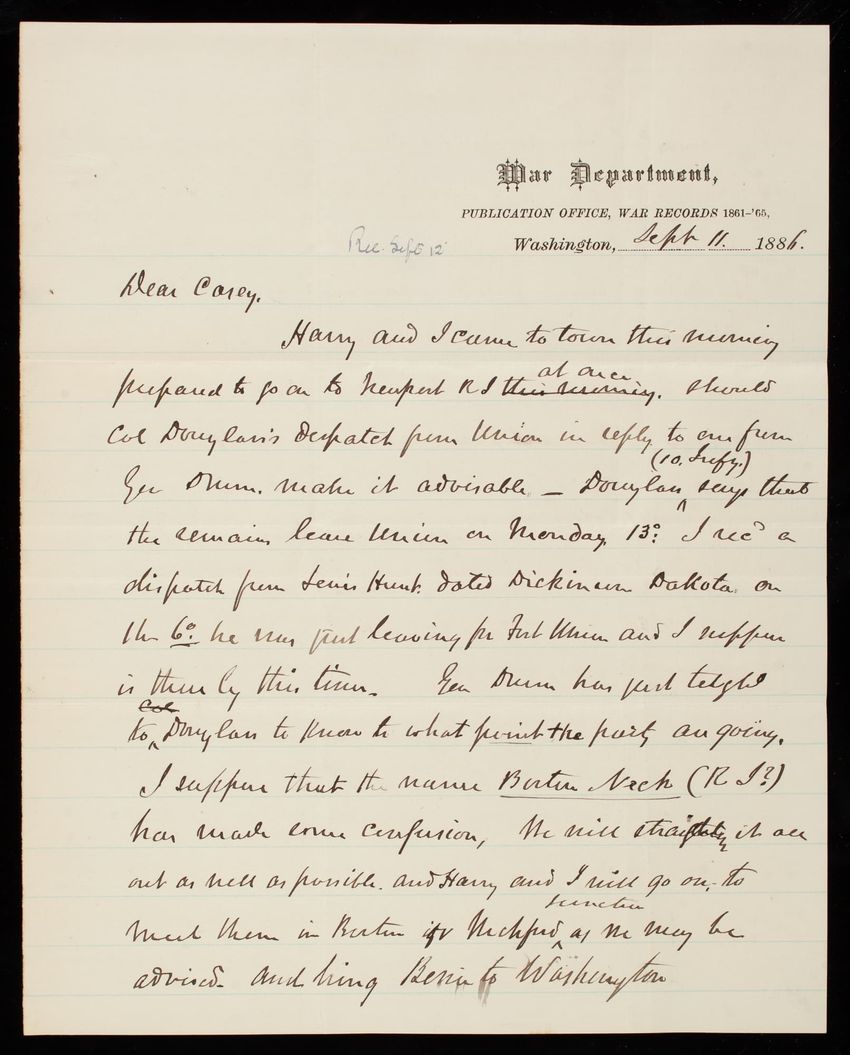 War Department,
PUBLICATION OFFICE, WAR RECORDS 1861–'65,
Rec. Sept 12
Washington, Sept 11. 1886.
Dear Casey.
Harry and I came to town this morning
at once
prepared to go on to Newport R I this morning. should
Col Douglass's despatch from Union in reply to one from
(10. Infy.)
Gen Drum. make it advisable – Douglass says that
the remains leave Union on Monday 13º. I recd a
dispatch from Lewis Hunt. dated Dickinson Dakota. on
the 6º. he was just leaving for Fort Union and I suppose
is there by this time. Gen Drum has just telghd
Col
to Douglass to know to what point the party are going.
I suppose that the name Boston Neck (R I?)
has made some confusion, We will straighten it all
out as well as possible. and Harry and I will go on, to
Junction
meet them in Boston or Meckford as we may be
advised. and bring to Washington